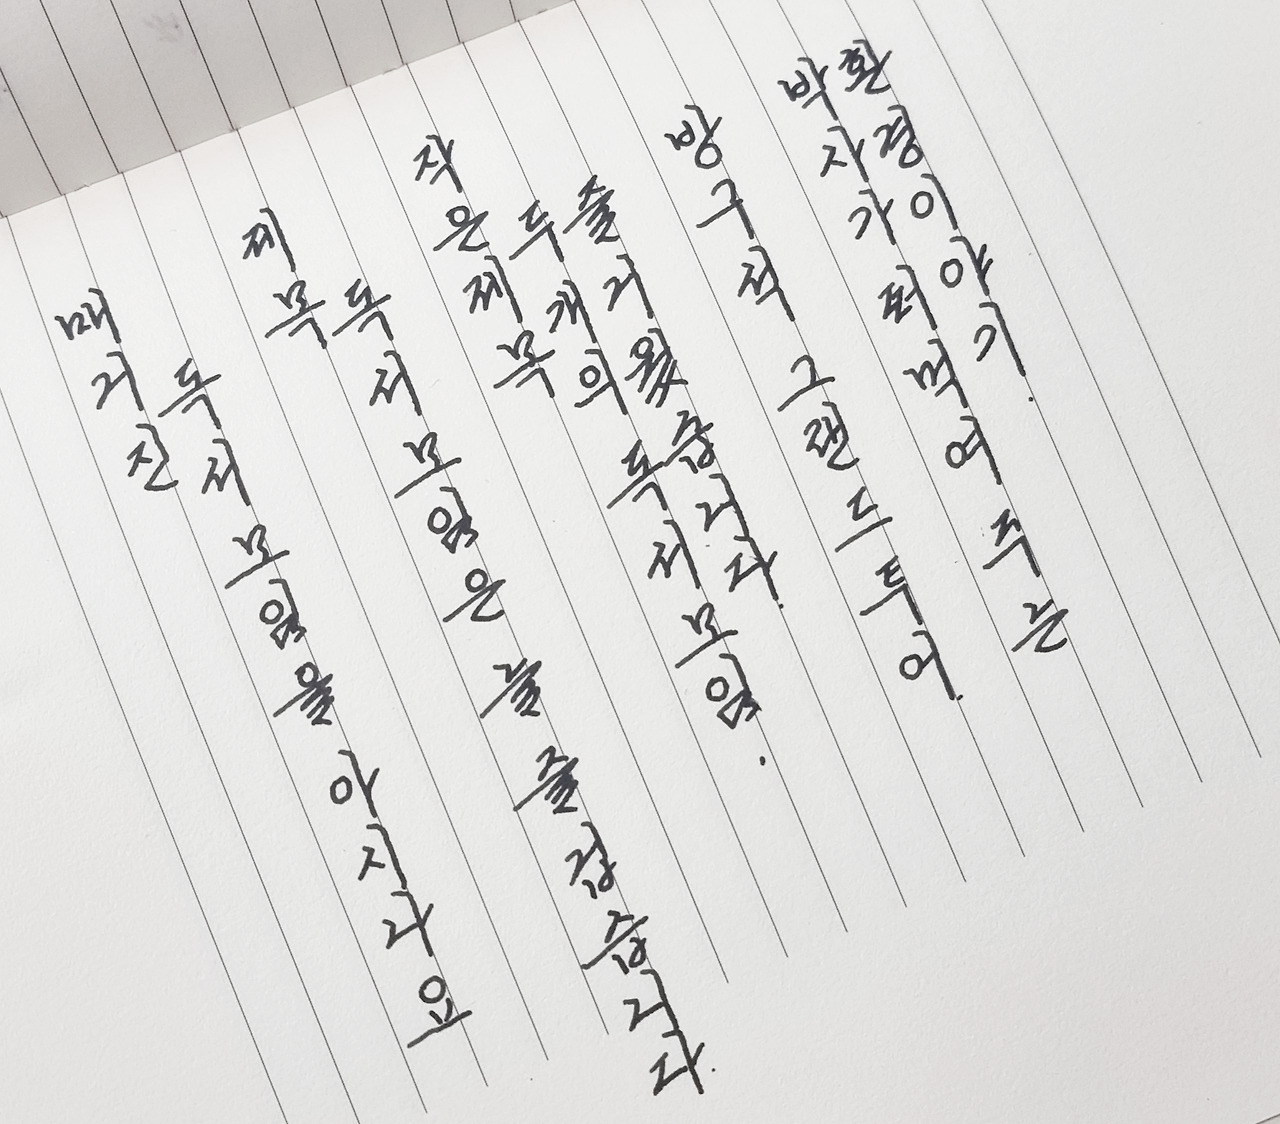 매거진
독서모임을 아시나요
제목
독서모임은 늘 즐겁습니다.
작은제목
두개의 독서모임.
즐거웠습니다.
방구석 그랜드투어.
박사가 퍼먹여주는
환경이야기.